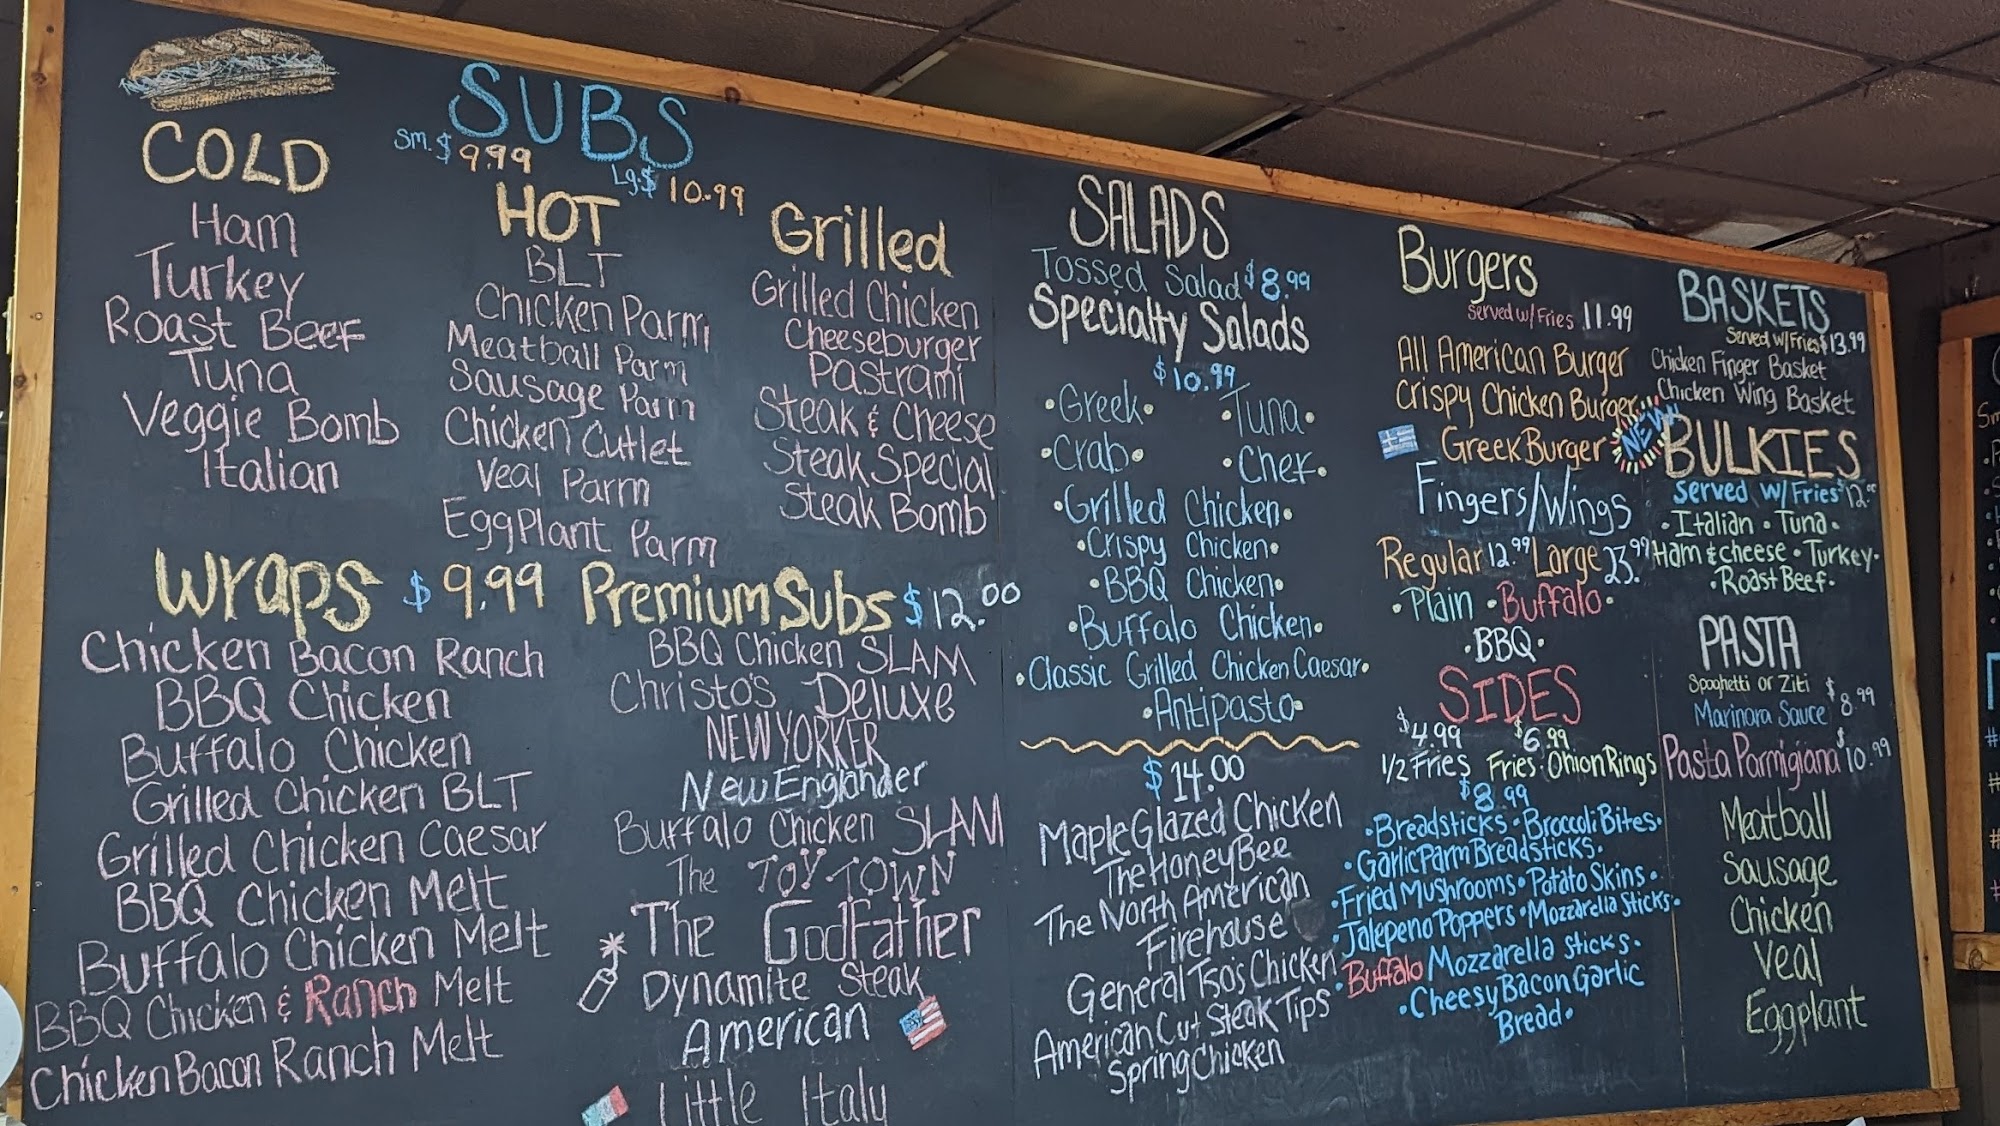 SUBS
Sm. $9.99
Lg. $10.99
COLD
Ham
Turkey
Roast Beef
Tuna
Veggie Bomb
Italian
HOT
BLT
Chicken Parm
Meatball Parm
Sausage Parm
Chicken Cutlet
Veal Parm
EggPlant Parm
Grilled
Grilled Chicken
Cheeseburger
Pastrami
Steak & Cheese
Steak Special
Steak Bomb
Wraps $9.99
Chicken Bacon Ranch
BBQ Chicken
Buffalo Chicken
Grilled Chicken BLT
Grilled Chicken Caesar
BBQ Chicken Melt
Buffalo Chicken Melt
BBQ Chicken & Ranch Melt
Chicken Bacon Ranch Melt
Premium Subs $12.00
BBQ Chicken SLAM
Christo's Deluxe
NEW YORKER
New Englander
Buffalo Chicken SLAM
The TOY TOWN
The GodFather
Dynamite Steak
American
Little Italy
SALADS
Tossed Salad $8.99
Specialty Salads
$10.99
•Greek• •Tuna•
•Crab• •Chef•
•Grilled Chicken•
•Crispy Chicken•
•BBQ Chicken•
•Buffalo Chicken•
•Classic Grilled Chicken Caesar•
•Antipasto•
$14.00
Maple Glazed Chicken
The Honey Bee
The North American
Firehouse
General Tso's Chicken
American Cut Steak Tips
Spring Chicken
Burgers
Served w/ Fries 11.99
All American Burger
Crispy Chicken Burger
Greek Burger NEW!
Fingers/Wings
Regular 12.99 Large 23.99
•Plain •Buffalo•
•BBQ•
SIDES
$4.99 $6.99
1/2 Fries Fries•Onion Rings
$8.99
•Breadsticks•Broccoli Bites•
•Garlic Parm Breadsticks•
•Fried Mushrooms•Potato Skins•
•Jalepeno Poppers•Mozzarella Sticks•
•Buffalo Mozzarella Sticks•
•Cheesy Bacon Garlic
Bread•
BASKETS
Served w/ Fries $13.99
Chicken Finger Basket
Chicken Wing Basket
BULKIES
Served w/ Fries $12.00
•Italian •Tuna•
Ham & cheese •Turkey•
•Roast Beef•
PASTA
Spaghetti or Ziti
Marinara Sauce $8.99
Pasta Parmigiana $10.99
Meatball
Sausage
Chicken
Veal
Eggplant